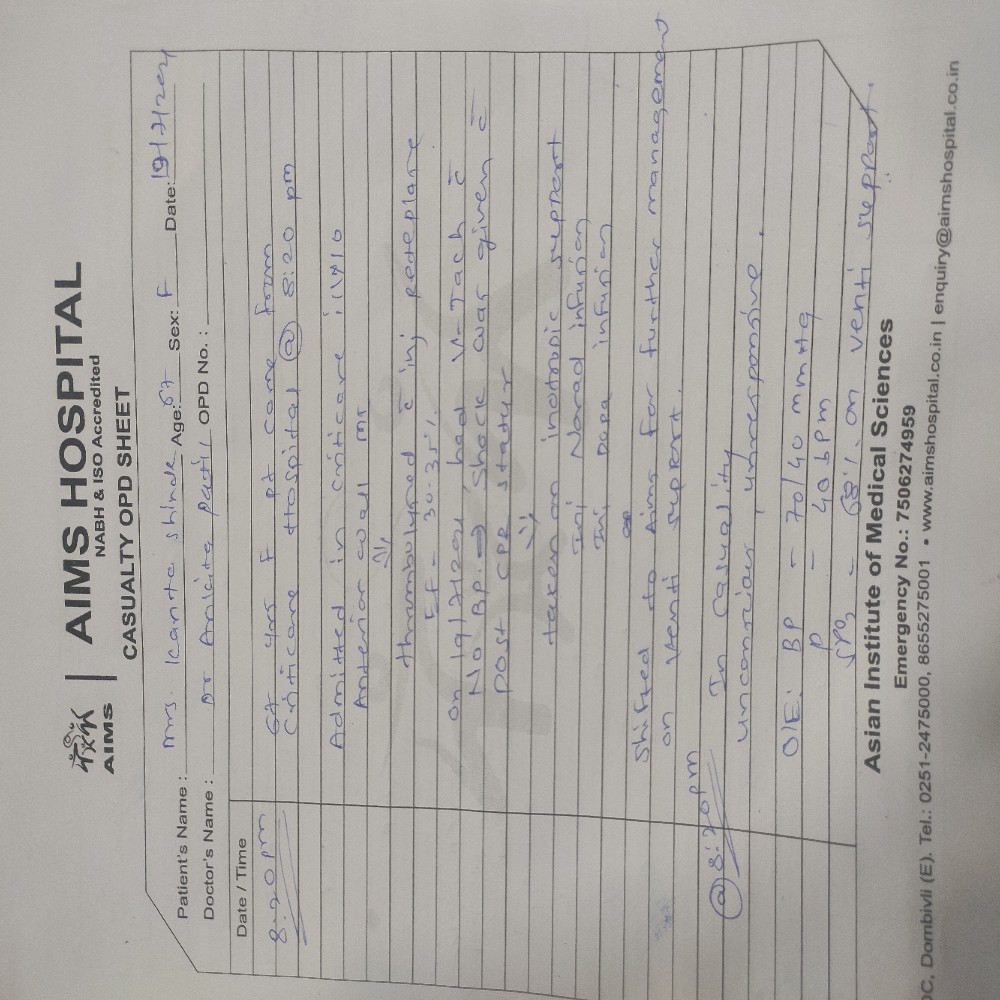 AIMS HOSPITAL
NABH & ISO Accredited
AIMS
CASUALTY OPD SHEET
Patient's Name : Mrs. Kanta Shinde Age: 67 Sex: F Date: 19/7/2024
Doctor's Name : Dr Anicita Patil OPD No. :
Date / Time
8:20 pm 67 yrs F pt came from
Criticare Hospital @ 8:20 pm
Admitted in criticare i/v/o
Anterior wall MI
thrombolyned c̄ inj reteplare
EF - 30-35%
on 19/7/2024 had V-Tach c̄
No BP → shock war given c̄
post CPR statur
taken on inotropic support
Inj Norad infurion
Inj Dopa infurion
Shifted to Aims for further management
on Venti support.
@ 8:20pm In Casuality
unconsciour, unresponsive.
O/E: BP - 70/40 mmHg
P - 40 bpm
SPO2 - 68% on venti support.
Asian Institute of Medical Sciences
Emergency No.: 7506274959
C, Dombivli (E). Tel.: 0251-2475000, 8655275001 • www.aimshospital.co.in | enquiry@aimshospital.co.in